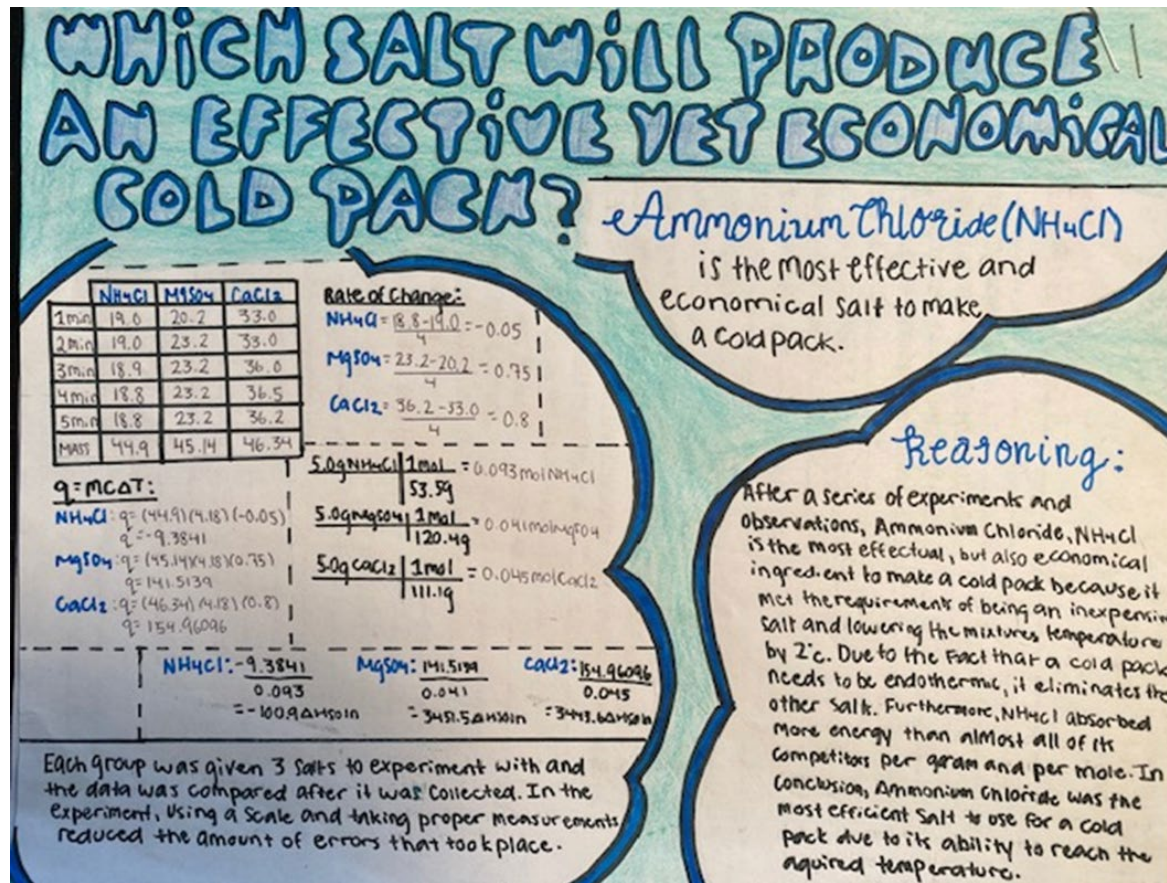 WHICH SALT WILL PRODUCE
AN EFFECTIVE YET ECONOMICAL
COLD PACK?
Ammonium Chloride (NH4Cl)
is the most effective and
economical salt to make
a cold pack.
NH4Cl MgSO4 CaCl2
1min 19.0 20.2 33.0
2min 19.0 23.2 33.0
3min 18.9 23.2 36.0
4min 18.8 23.2 36.5
5min 18.8 23.2 36.2
MASS 44.9 45.14 46.34
Rate of Change:
NH4Cl = 18.8-19.0 = -0.05
4
MgSO4 = 23.2-20.2 = 0.75
4
CaCl2 = 36.2-33.0 = 0.8
4
q=MCΔT:
NH4Cl: q=(44.9)(4.18)(-0.05)
q=-9.3841
MgSO4: q=(45.14)(4.18)(0.75)
q=141.5139
CaCl2: q=(46.34)(4.18)(0.8)
q=154.96096
5.0g NH4Cl | 1mol = 0.093mol NH4Cl
53.5g
5.0g MgSO4 | 1mol = 0.041mol MgSO4
120.4g
5.0g CaCl2 | 1mol = 0.045mol CaCl2
111.1g
NH4Cl: -9.3841 MgSO4: 141.5139 CaCl2: 154.96096
0.093 0.041 0.045
=-100.9ΔHsoln =3451.5ΔHsoln =3443.6ΔHsoln
Each group was given 3 salts to experiment with and
the data was compared after it was collected. In the
experiment, using a scale and taking proper measurements
reduced the amount of errors that took place.
Reasoning:
After a series of experiments and
observations, Ammonium Chloride, NH4Cl
is the most effectual, but also economical
ingredient to make a cold pack because it
met the requirements of being an inexpensiv
salt and lowering the mixtures temperature
by 2°c. Due to the fact that a cold pack
needs to be endothermic, it eliminates the
other salts. Furthermore, NH4Cl absorbed
more energy than almost all of its
competitors per gram and per mole. In
conclusion, Ammonium Chloride was the
most efficient salt to use for a cold
pack due to its ability to reach the
aquired temperature.